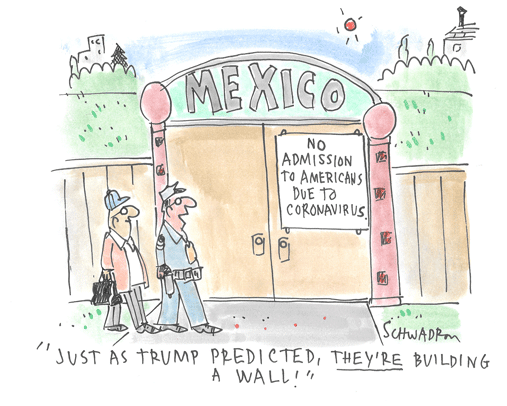 MEXICO
NO
ADMISSION
TO AMERICANS
DUE TO
CORONAVIRUS.
SCHWADRON
"JUST AS TRUMP PREDICTED, THEY'RE BUILDING
A WALL!"